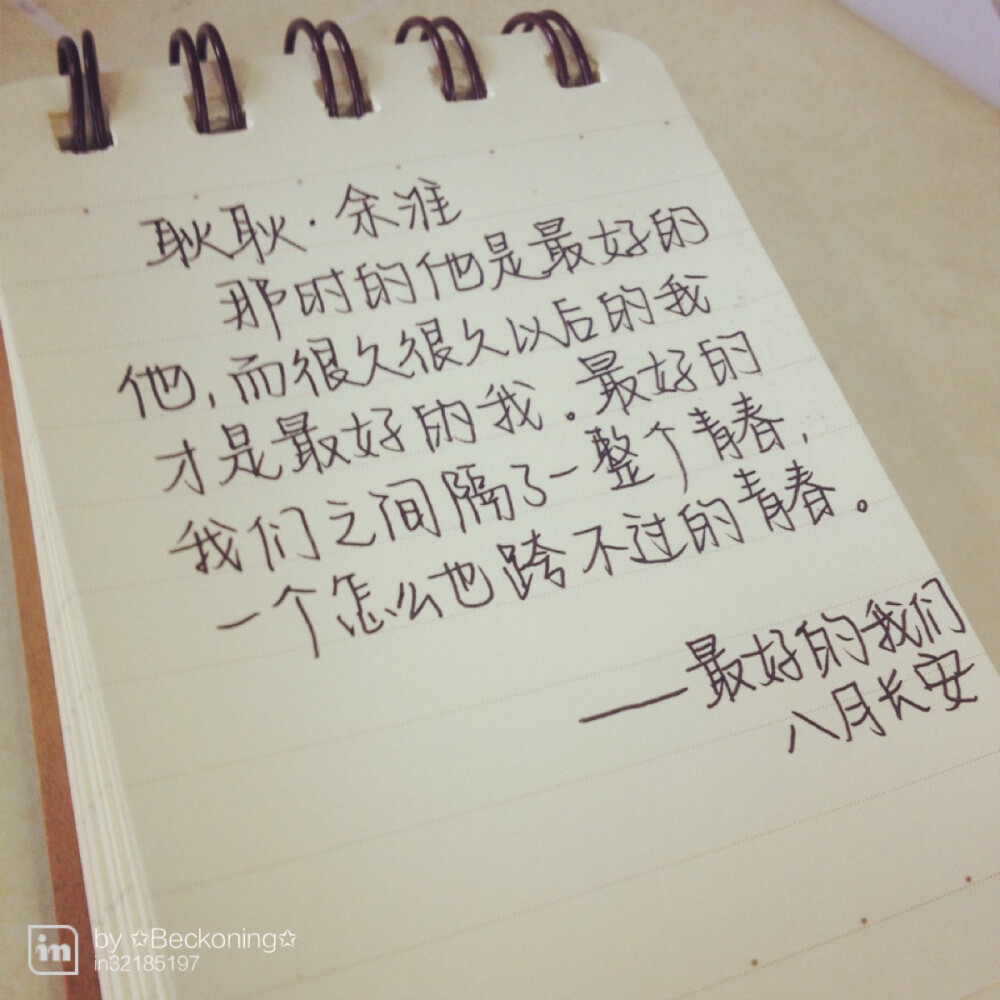 耿耿·余淮
那时的他是最好的
他,而很久很久以后的我
才是最好的我。最好的
我们之间隔了一整个青春,
一个怎么也跨不过的青春。
——最好的我们
八月长安
in by ✩Beckoning✩
in32185197